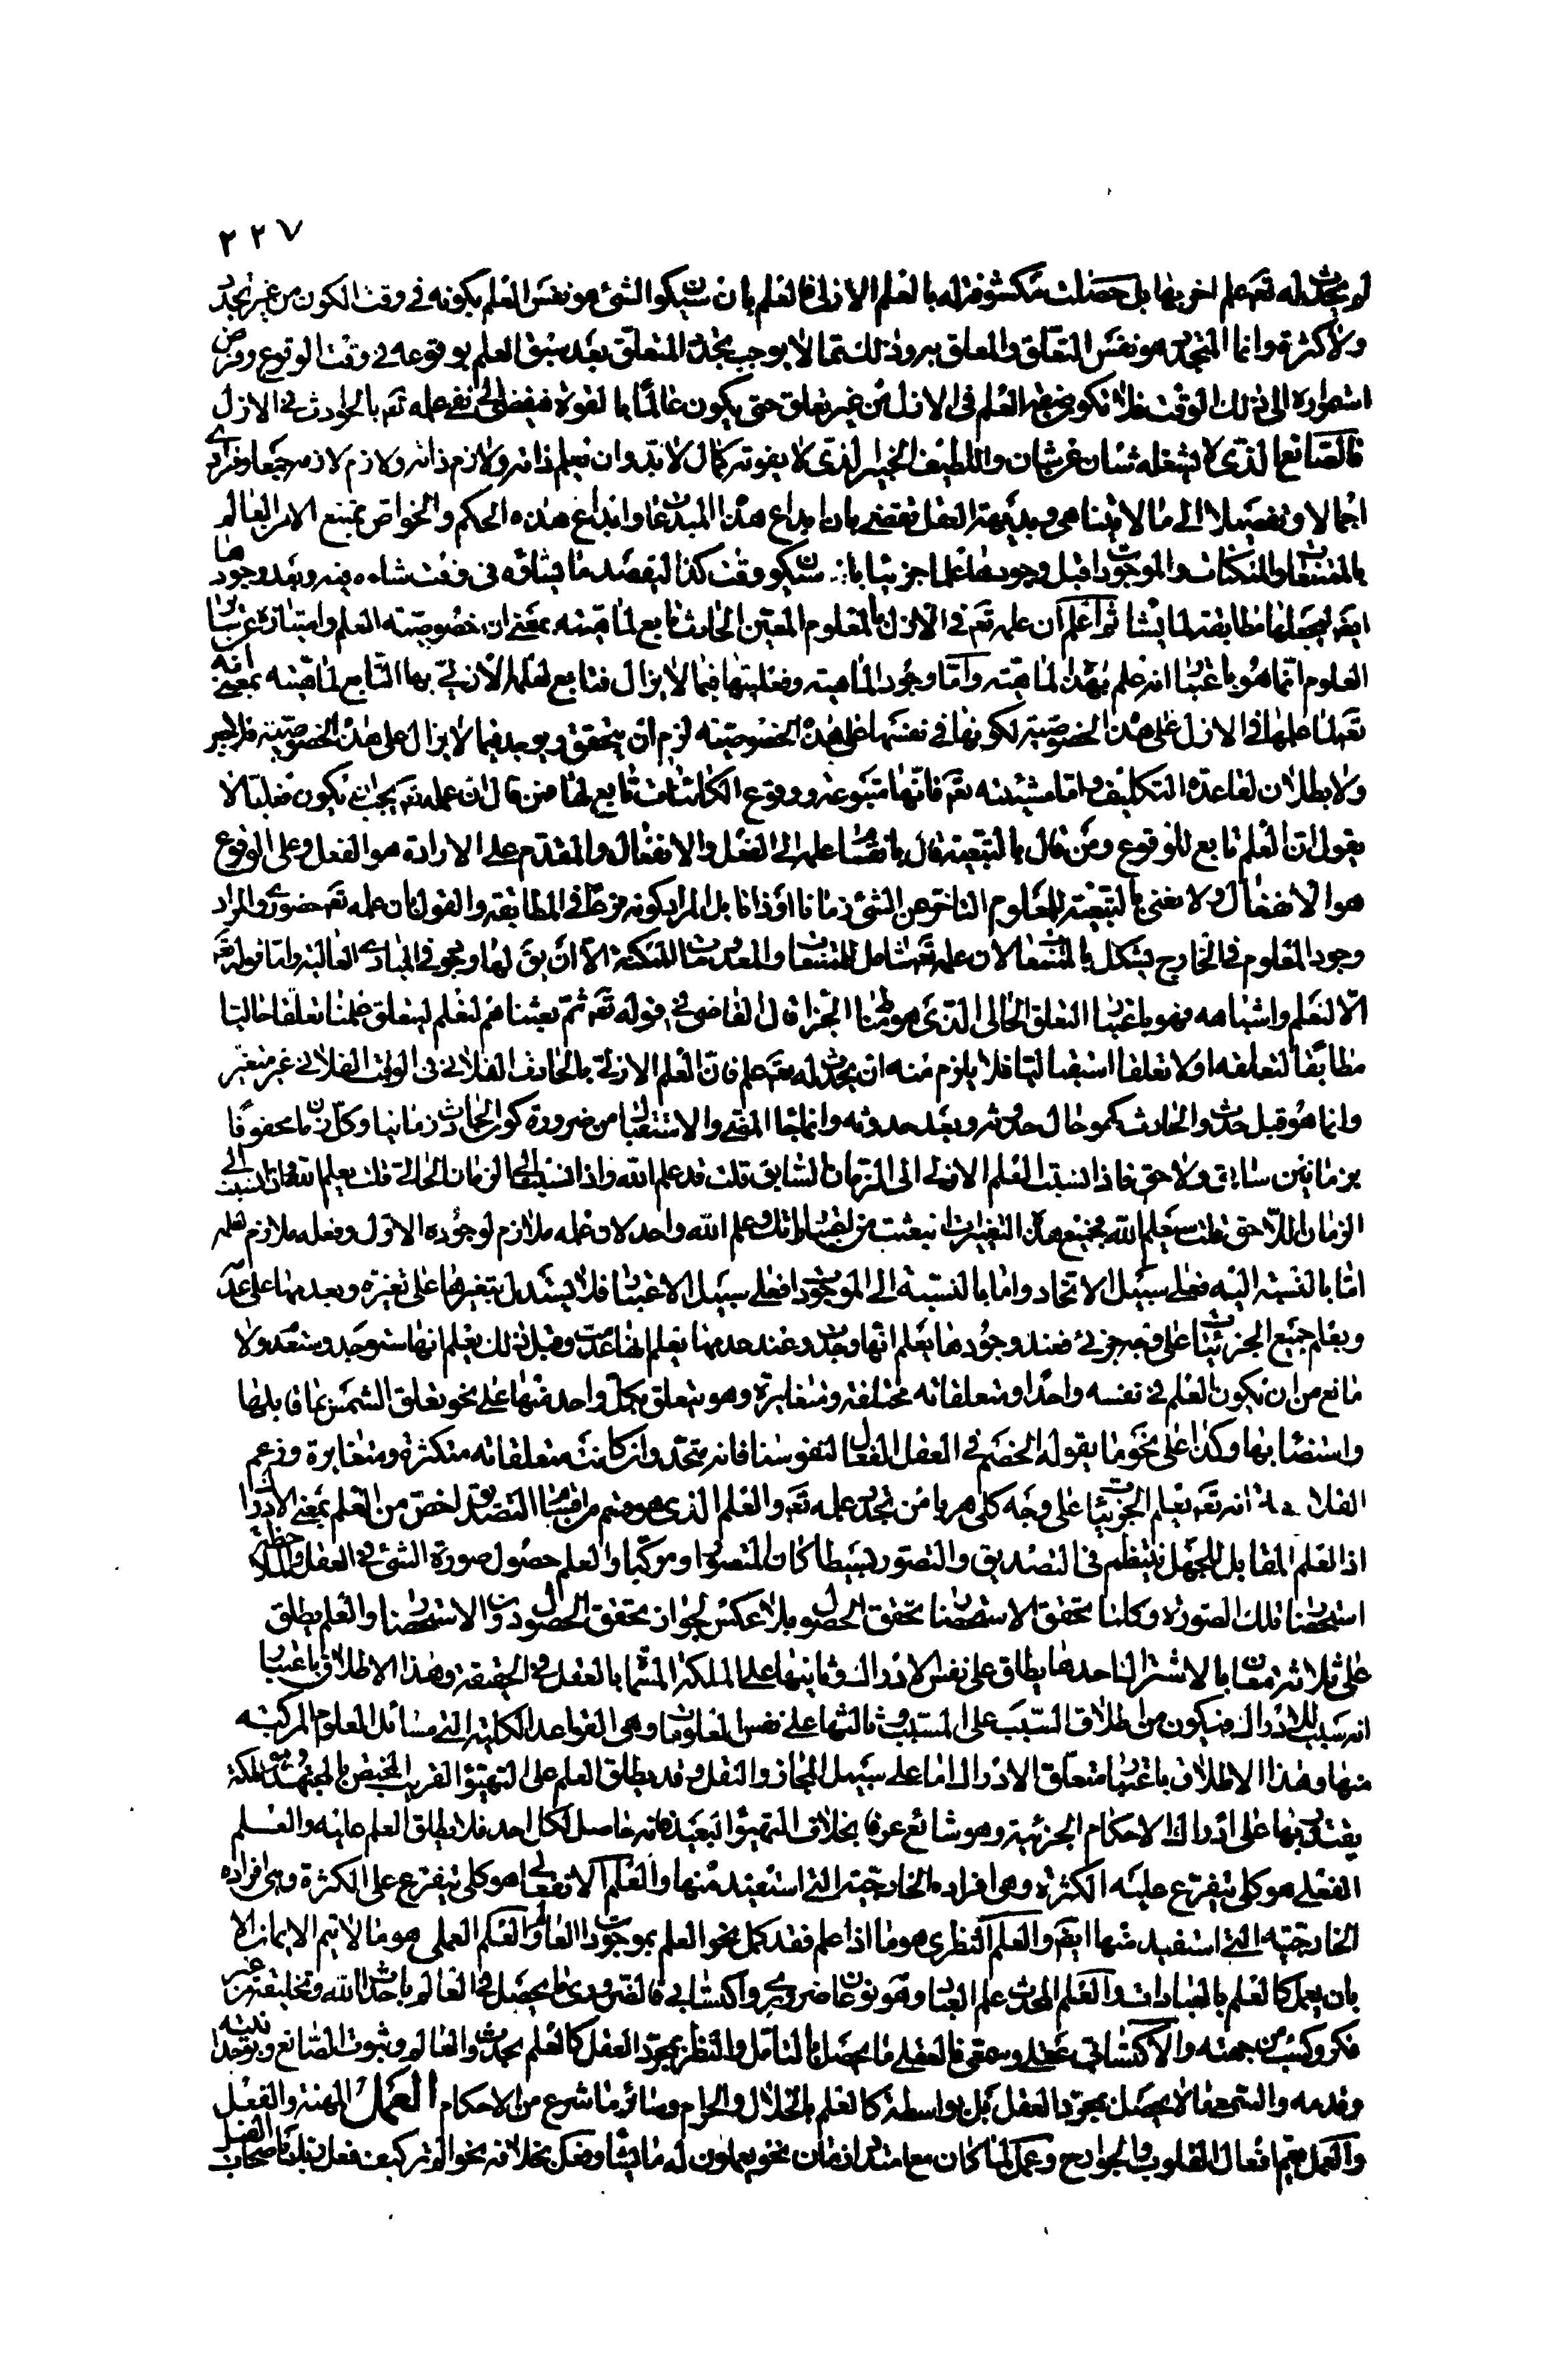 ٢٢٧
لم يحدث له تعم علم اخر بها بل حصلت مكشوفة له بالعلم الازلى فالعلم بان سيكون الشئ هو نفس العلم بكونه فى وقت الكون من غير تجدد
ولا كثرة وانما المتجدد هو نفس التعلق والمعلق به وذلك مما لا يوجب تجدد المتعلق بعد سبق العلم بوقوعه فى وقت الوقوع وفرض
استمراره الى ذلك الوقت فلا تكون صفة العلم فى الازل من غير تعلق حتى يكون عالما بالقوة فيفضى الى نفى علمه تعم بالحوادث فى الازل
فالصانع الذى لا يشغله شان عن شان واللطيف الخبير الذى لا يفوته كمال لا بد وان يعلم ذاته ولازم ذاته ولازم لازمه جمعا وفرادى
اجمالا وتفصيلا الى ما لا يتناهى وبديهة العقل تقضى بان ابداع هذه المبدعات وابداع هذه الحكم والخواص يمتنع الا من العالم
بالممتنعات والممكنات والموجودات قبل وجودها علما جزئيا بانه سيكون وقت كذا ليقصد ما يشاؤه فى وقت شاءه فيه وبعد وجودها
ايضا ليجعلها مطابقة لما يشا ثم اعلم ان علمه تعم فى الازل بالمعلوم المعين الحادث تابع لماهيته بمعنى ان خصوصية العلم وامتيازه عن سائر
العلوم انما هو باعتبار انه علم بهذه الماهية واما وجود الماهية وفعليتها فيما لا يزال فتابع لعلمه الازلى بها التابع لماهيته بمعنى انه
تعم لما علمها فى الازل على هذه الخصوصية لكونها فى نفسها على هذه الخصوصية لزم ان يتحقق ويوجد فيما لا يزال على هذه الخصوصية فلا جبر
ولا بطلان لقاعدة التكليف واما مشيئته تعم فانها متبوعة ووقوع الكائنات تابع لها فمن قال ان علمه تعم يجب ان يكون فعليا لا
يقول ان العلم تابع للوقوع ومن قال بالتبعية قال بانقسام علمه الى الفعل والانفعال والمقدم على الارادة هو الفعل وعلى الوقوع
هو الانفعال ولا نعنى بالتبعية للمعلوم التاخر عن الشئ زمانا او ذاتا بل المراد كونه فرعا فى المطابقة والقول بان علمه تعم حضورى والمراد
وجود المعلوم فى الخارج يشكل بالممتنعات لان علمه تعم شامل للممتنعات والمعدومات الممكنة الا ان يق لها وجود فى المبادى العالية واما قوله تعم
الا لنعلم واشباهه فهو باعتبار التعلق الحالى الذى هو مناط الجزاء قال القاضى فى قوله تعم ثم بعثناهم لنعلم ليتعلق علمنا تعلقا حاليا
مطابقا لتعلقه اولا تعلقا استقباليا فلا يلزم منه ان يحدث له تعم علم فان العلم الازلى بالحادث الفلانى فى الوقت الفلانى غير متغير
وانما هو قبل حدوث الحادث كهو حال حدوثه وبعد حدوثه وانما جاء المضى والاستقبال من ضرورة كون الحادث زمانيا وكل زمان محفوفا
بزمانين سابق ولاحق فاذا نسبت العلم الازلى الى الزمان السابق قلت قد علم الله واذا نسبت الى الزمان الحالى قلت يعلم الله واذا نسبت الى
الزمان اللاحق قلت سيعلم الله فجميع هذه التغيرات انبعثت من اعتباراتك وعلم الله واحد لان علمه ملازم لوجوده الاول وفعله ملازم لعلمه
اما بالنسبة اليه فعلى سبيل الاتحاد واما بالنسبة الى الموجودات فعلى سبيل الاعتبار فلا يستدل بتغيرها على تغيره وبعدمها على عدمه
ويعلم جميع الجزئيات على وجه جزئى فعند وجودها يعلم انها وجدت وعند عدمها يعلم انها عدمت وقبل ذلك يعلم انها ستوجد وستعدم ولا
مانع من ان يكون العلم فى نفسه واحدا ومتعلقاته مختلفة ومتغايرة وهو يتعلق بكل واحد منها على نحو تعلق الشمس بما قابلها
واستضاء بها وكذا على نحو ما يقوله الخصم فى العقل الفعال لنفوسنا فانه متحد وان كانت متعلقاته متكثرة ومتغايرة وزعم
الفلا انه تعم يعلم الجزئيات على وجه كلى هربا من تجدد علمه تعم والعلم الذى هو قسم من اقسام التصديق اخص من العلم بمعنى الادراك
اذ العلم المقابل للجهل ينتظم فى التصديق والتصور بسيطا كان المتصور او مركبا والعلم حصول صورة الشئ فى العقل والملاحظة
استحضار تلك الصورة وكلما تحقق الاستحضار تحقق الحصول بلا عكس لجواز تحقق الحصول دون الاستحضار والعلم يطلق
على ثلاثة معان بالاشتراك احدها يطلق على نفس الادراك وثانيها على الملكة المسماة بالعقل فى الحقيقة وهذا الاطلاق باعتبار
انه سبب للادراك فيكون من اطلاق السبب على المسبب وثالثها على نفس المعلومات وهى القواعد الكلية التى مسائل العلوم المركبة
منها وهذا الاطلاق باعتبار متعلق الادراك اما على سبيل المجاز والنقل وقد يطلق العلم على التهيؤ القريب المختص بالمجتهد وهو ملكة
يقتدر بها على ادراك الاحكام الجزئية وهو شائع عرفا بخلاف التهيؤ البعيد فانه حاصل لكل احد فلا يطلق العلم عليه والعلم
الفعلى هو كلى يتفرع عليه الكثرة وهى افراده الخارجية التى استفيد منها والعلم الانفعالى هو كلى يتفرع على الكثرة وهى افراده
الخارجية التى استفيد منها ايضا والعلم النظرى هو ما اذا علم فقد كمل نحو العلم بموجودات العالم والعلم العملى هو ما لا يتم الا بان
بان يعمل كالعلم بالعبادات والعلم المحدث علم العباد وهو نوعان ضرورى واكتسابى فالضرورى ما يحصل فى العالم باحداث الله وتخليقه من غير
فكر وكسب من جهته والاكتسابى عقلى وسمعى فالعقلى ما يحصل بالتامل والنظر بمجرد العقل كالعلم بحدوث العالم وثبوت الصانع وبوحدانيته
وقدمه والسمعى ما لا يحصل بمجرد العقل بل بواسطة كالعلم بالحلال والحرام وسائر ما شرع من الاحكام العمل المهنة والفعل
والعمل يعم افعال القلوب والجوارح وعمل لما كان مع امتداد زمان نحو يعملون له ما يشاء وفعل بخلافه نحو الم تر كيف فعل ربك باصحاب الفيل